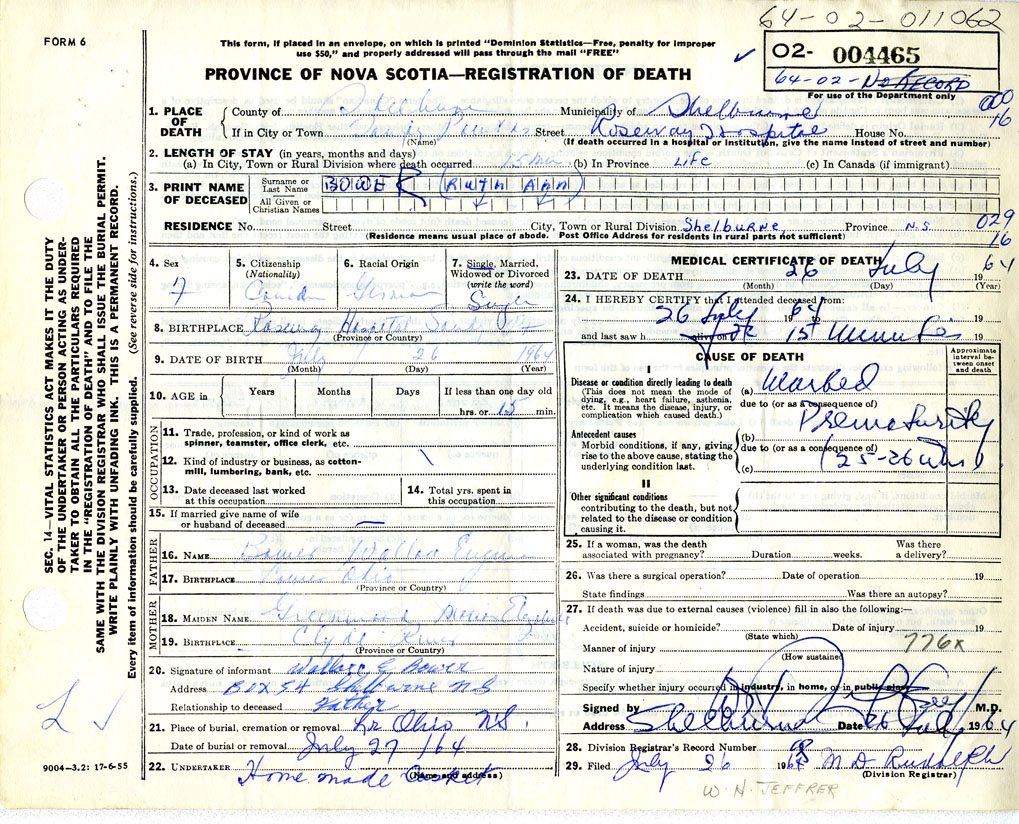 64-02-011062
FORM 6
This form, if placed in an envelope, on which is printed "Dominion Statistics—Free, penalty for improper
use $50," and properly addressed will pass through the mail "FREE"
02- 004465
64-02-No RECORD
For use of the Department only
PROVINCE OF NOVA SCOTIA—REGISTRATION OF DEATH
000
16
1. PLACE OF DEATH
County of Shelburne Municipality of Shelburne
If in City or Town Sandy Point Street Roseway Hospital House No.
(Name) (If death occurred in a hospital or institution, give the name instead of street and number)
2. LENGTH OF STAY (in years, months and days)
(a) In City, Town or Rural Division where death occurred 15 min (b) In Province Life (c) In Canada (if immigrant)
3. PRINT NAME OF DECEASED
Surname or Last Name BOWER (RUTH ANN)
All Given or Christian Names
RESIDENCE No. Street City, Town or Rural Division Shelburne, Province N.S.
029
16
(Residence means usual place of abode. Post Office Address for residents in rural parts not sufficient)
4. Sex F
5. Citizenship (Nationality) Canadn
6. Racial Origin German
7. Single, Married, Widowed or Divorced (write the word) Single
8. BIRTHPLACE Roseway Hospital Sandy Pt
(Province or Country)
9. DATE OF BIRTH July 26 1964
(Month) (Day) (Year)
10. AGE in Years Months Days If less than one day old
hrs. or 15 min.
OCCUPATION
11. Trade, profession, or kind of work as spinner, teamster, office clerk, etc.
12. Kind of industry or business, as cotton-mill, lumbering, bank, etc.
13. Date deceased last worked at this occupation
14. Total yrs. spent in this occupation
15. If married give name of wife or husband of deceased —
FATHER
16. NAME Bower Wallace Eugene
17. BIRTHPLACE Lower Ohio
(Province or Country)
MOTHER
18. MAIDEN NAME Greenwood Elizabeth
19. BIRTHPLACE Clyde River
(Province or Country)
20. Signature of informant Wallace E Bower
Address Box 54 Shelburne N S
Relationship to deceased Father
21. Place of burial, cremation or removal Lr Ohio N S.
Date of burial or removal July 27/64
22. UNDERTAKER Home made Casket
(Name and address)
MEDICAL CERTIFICATE OF DEATH
23. DATE OF DEATH 26 July 1964
(Month) (Day) (Year)
24. I HEREBY CERTIFY that I attended deceased from:
26 July 1964 to 19
and last saw h alive on for 15 Minutes
CAUSE OF DEATH
Approximate interval between onset and death
I
Disease or condition directly leading to death
(This does not mean the mode of dying, e.g., heart failure, asthenia, etc. It means the disease, injury, or complication which caused death.)
(a) Marked
due to (or as a consequence of)
Prematurity
Antecedent causes
Morbid conditions, if any, giving rise to the above cause, stating the underlying condition last.
(b)
due to (or as a consequence of)
(c) (25-26 wks)
II
Other significant conditions
contributing to the death, but not related to the disease or condition causing it.
25. If a woman, was the death associated with pregnancy? Duration weeks. Was there a delivery?
26. Was there a surgical operation? Date of operation 19
State findings Was there an autopsy?
27. If death was due to external causes (violence) fill in also the following:—
Accident, suicide or homicide? Date of injury 19
(State which)
776X
Manner of injury
(How sustained)
Nature of injury
Specify whether injury occurred in industry, in home, or in public place
Signed by M.D.
Address Shelburne Date 26 July 1964
28. Division Registrar's Record Number
29. Filed July 26 1964 M D Rudolph
(Division Registrar)
W. H. JEFFRER
SEC. 14—VITAL STATISTICS ACT MAKES IT THE DUTY
OF THE UNDERTAKER OR PERSON ACTING AS UNDER-
TAKER TO OBTAIN ALL THE PARTICULARS REQUIRED
IN THE "REGISTRATION OF DEATH" AND TO FILE THE
SAME WITH THE DIVISION REGISTRAR WHO SHALL ISSUE THE BURIAL PERMIT.
WRITE PLAINLY WITH UNFADING INK. THIS IS A PERMANENT RECORD.
Every item of information should be carefully supplied. (See reverse side for instructions.)
9004—3.2: 17-6-55